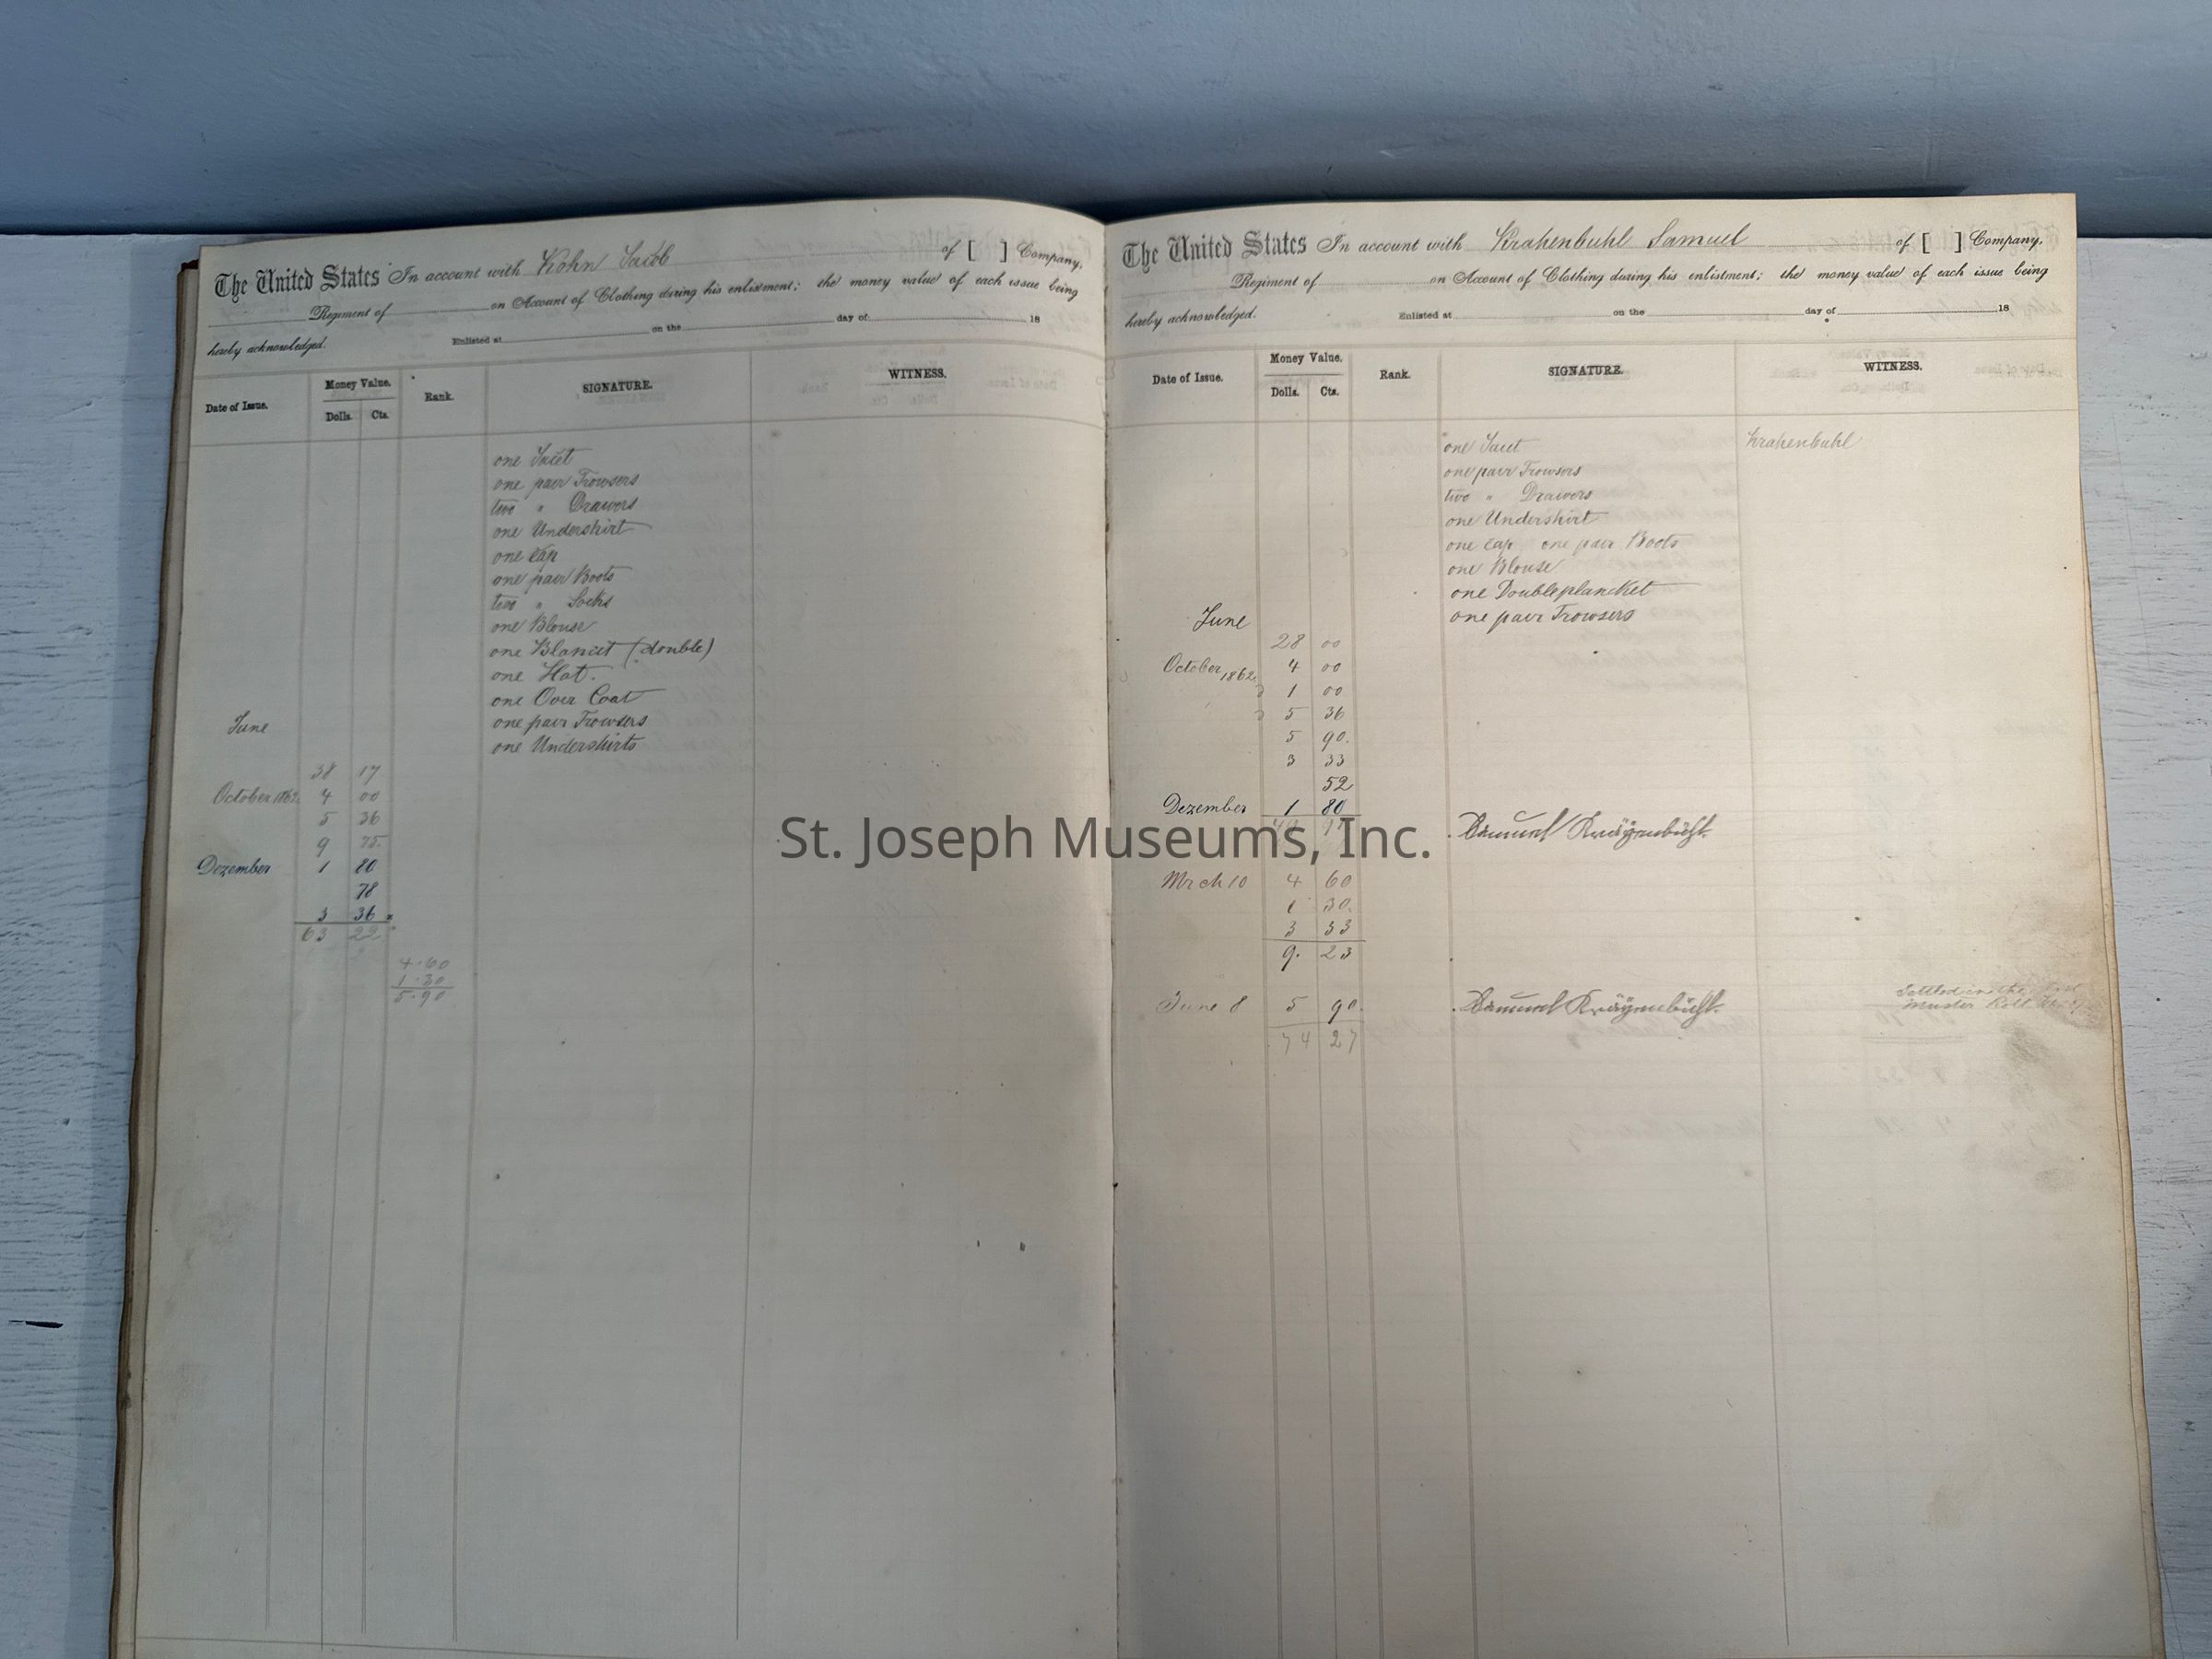 The United States In account with Kohn Jacob of [ ] Company,
Regiment of on Account of Clothing during his enlistment; the money value of each issue being
hereby acknowledged. Enlisted at on the day of 18
Date of Issue. Money Value. Rank. SIGNATURE. WITNESS.
Dolls. Cts.
one Jacet
one pair Trowsers
two " Drawers
one Undershirt
one Cap
one pair Boots
two " Socks
one Blouse
one Blancet (double)
one Hat.
one Over Coat
June one pair Trowsers
one Undershirts
38 17
October 1862 4 00
5 36
9 75.
Dezember 1 80
78
3 36
63 22
4.60
1.30
5.90
The United States In account with Krahenbuhl Samuel of [ ] Company,
Regiment of on Account of Clothing during his enlistment; the money value of each issue being
hereby acknowledged. Enlisted at on the day of 18
Date of Issue. Money Value. Rank. SIGNATURE. WITNESS.
Dolls. Cts.
one Jacet Krahenbuhl
one pair Trowsers
two " Drawers
one Undershirt
one Cap one pair Boots
one Blouse
one Doubleplancket
June one pair Trowsers
28 00
October 1862 4 00
1 00
5 36
5 90.
3 33
52
Dezember 1 80
Samuel Kräyenbühl.
Mrch 10 4 60
1 30.
3 33
9. 23
June 8 5 90. Samuel Kräyenbühl.
Settled in the
Muster Roll
74 27
St. Joseph Museums, Inc.